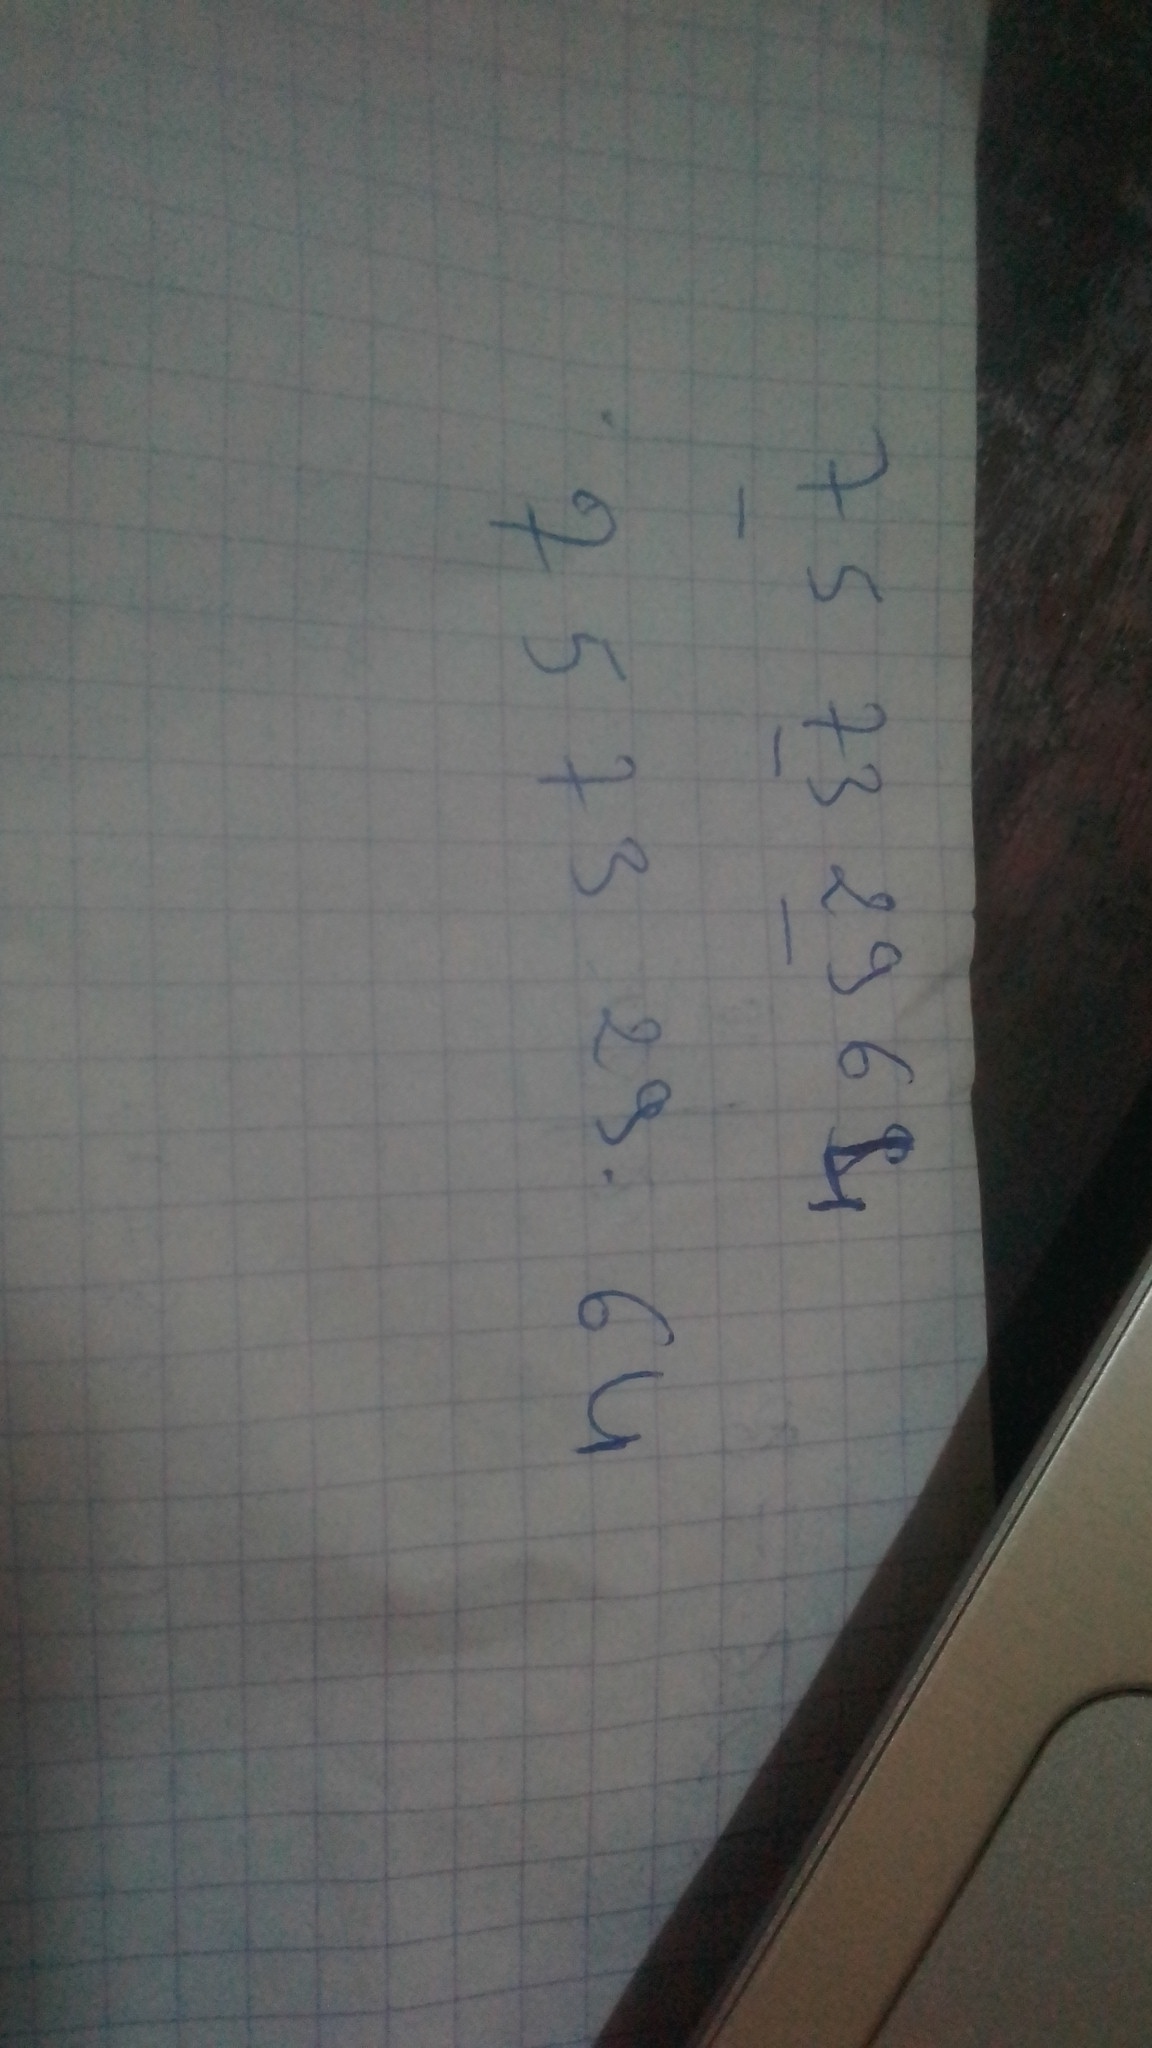 7 5 73 29 64
7 5 7 3 29. 64